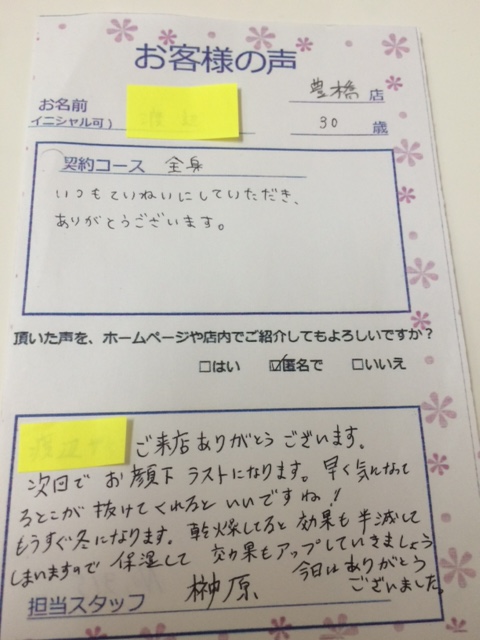 お客様の声
豊橋 店
お名前
イニシャル可)
30 歳
契約コース 全身
いつもていねいにしていただき、
ありがとうございます。
頂いた声を、ホームページや店内でご紹介してもよろしいですか?
□はい ☑匿名で □いいえ
ご来店ありがとうございます。
次回で お顔下 ラストになります。早く気になって
るとこが 抜けてくれると いいですね!
もうすぐ冬になります。乾燥してると 効果も 半減して
しまいますので 保湿して 効果もアップしていきましょう
今日はありがとう
ございました。
担当スタッフ 榊原